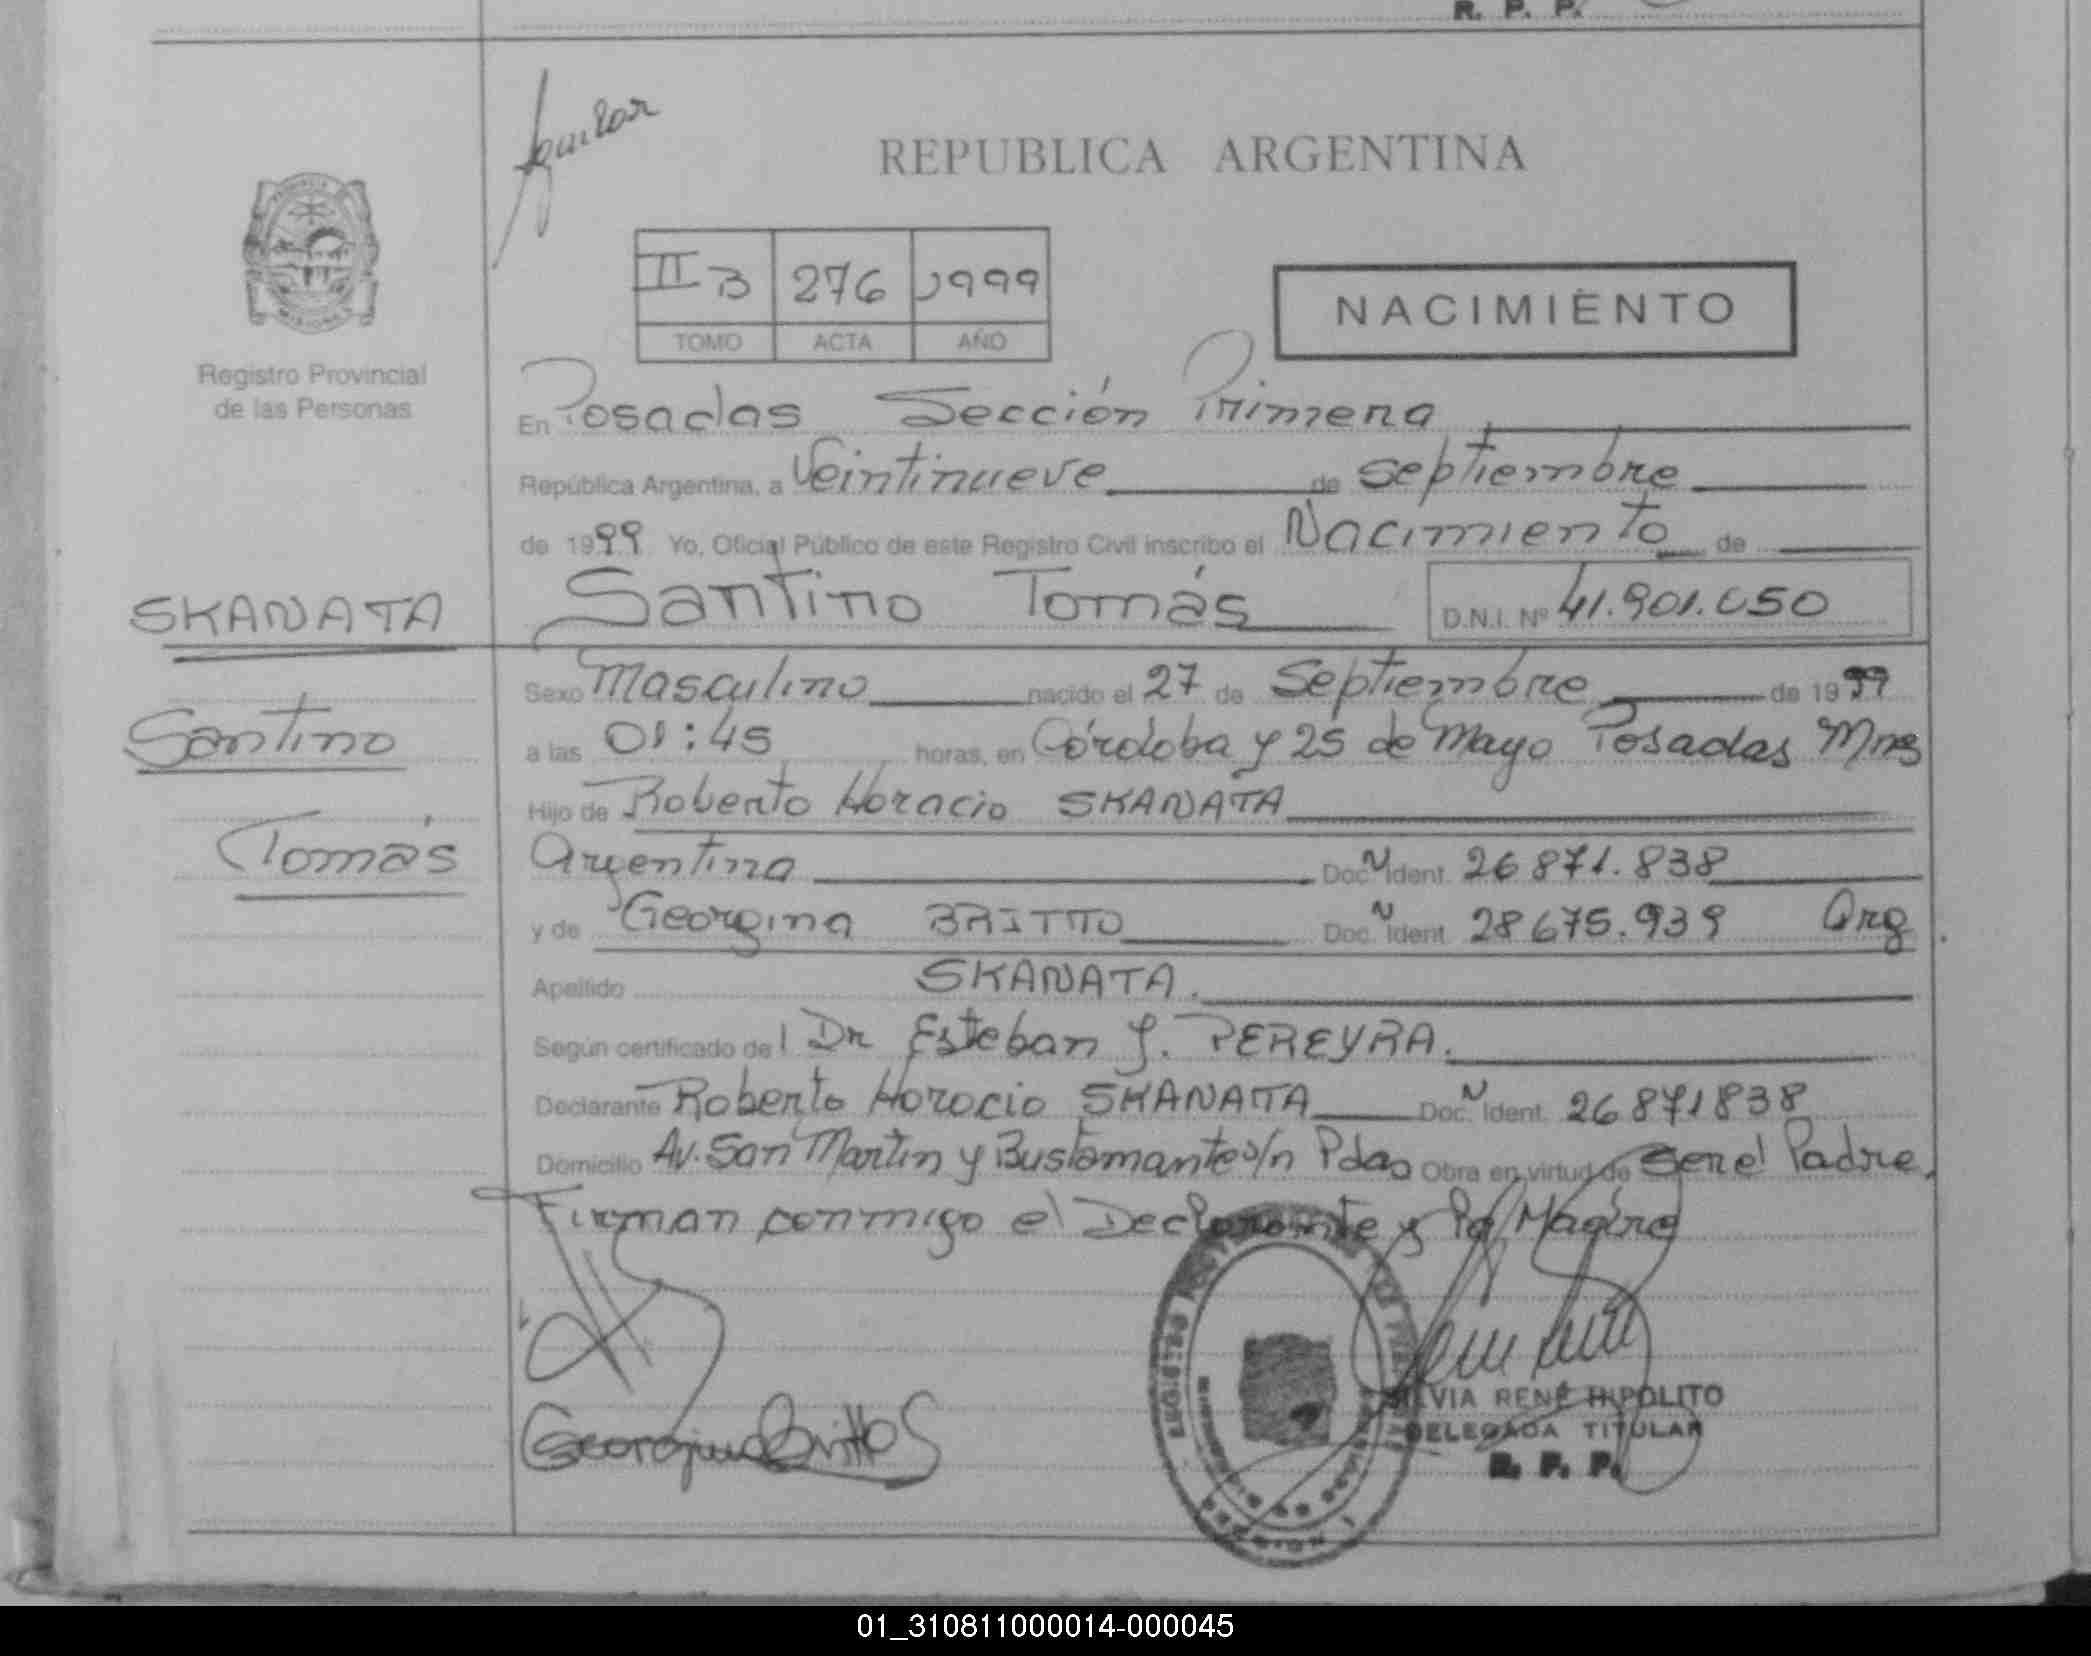 R. P. P.
Aguilar
REPUBLICA ARGENTINA
II B 276 1999
TOMO ACTA AÑO
NACIMIENTO
Registro Provincial
de las Personas
En Posadas Sección Primera
República Argentina, a Veintinueve de Septiembre
de 1999 Yo, Oficial Público de este Registro Civil inscribo el Nacimiento de
SKANATA
Santino Tomás D.N.I. Nº 41.901.050
Sexo Masculino nacido el 27 de Septiembre de 1999
Santino
a las 01:45 horas, en Córdoba y 25 de Mayo Posadas Mnes
Hijo de Roberto Horacio SKANATA
Tomás
Argentina Doc. Ident. 26871.838
y de Georgina BRITTO Doc. Ident. 28675.939 Arg
Apellido SKANATA.
Según certificado del Dr Esteban J. PEREYRA.
Declarante Roberto Horacio SKANATA Doc. Ident. 26871838
Domicilio Av. San Martin y Bustamante s/n Pdas Obra en virtud de Ser el Padre.
Firman conmigo el Declarante y la Madre
Georgina Britto S
SILVIA RENÉ HIPOLITO
DELEGADA TITULAR
R. P. P.
01_310811000014-000045